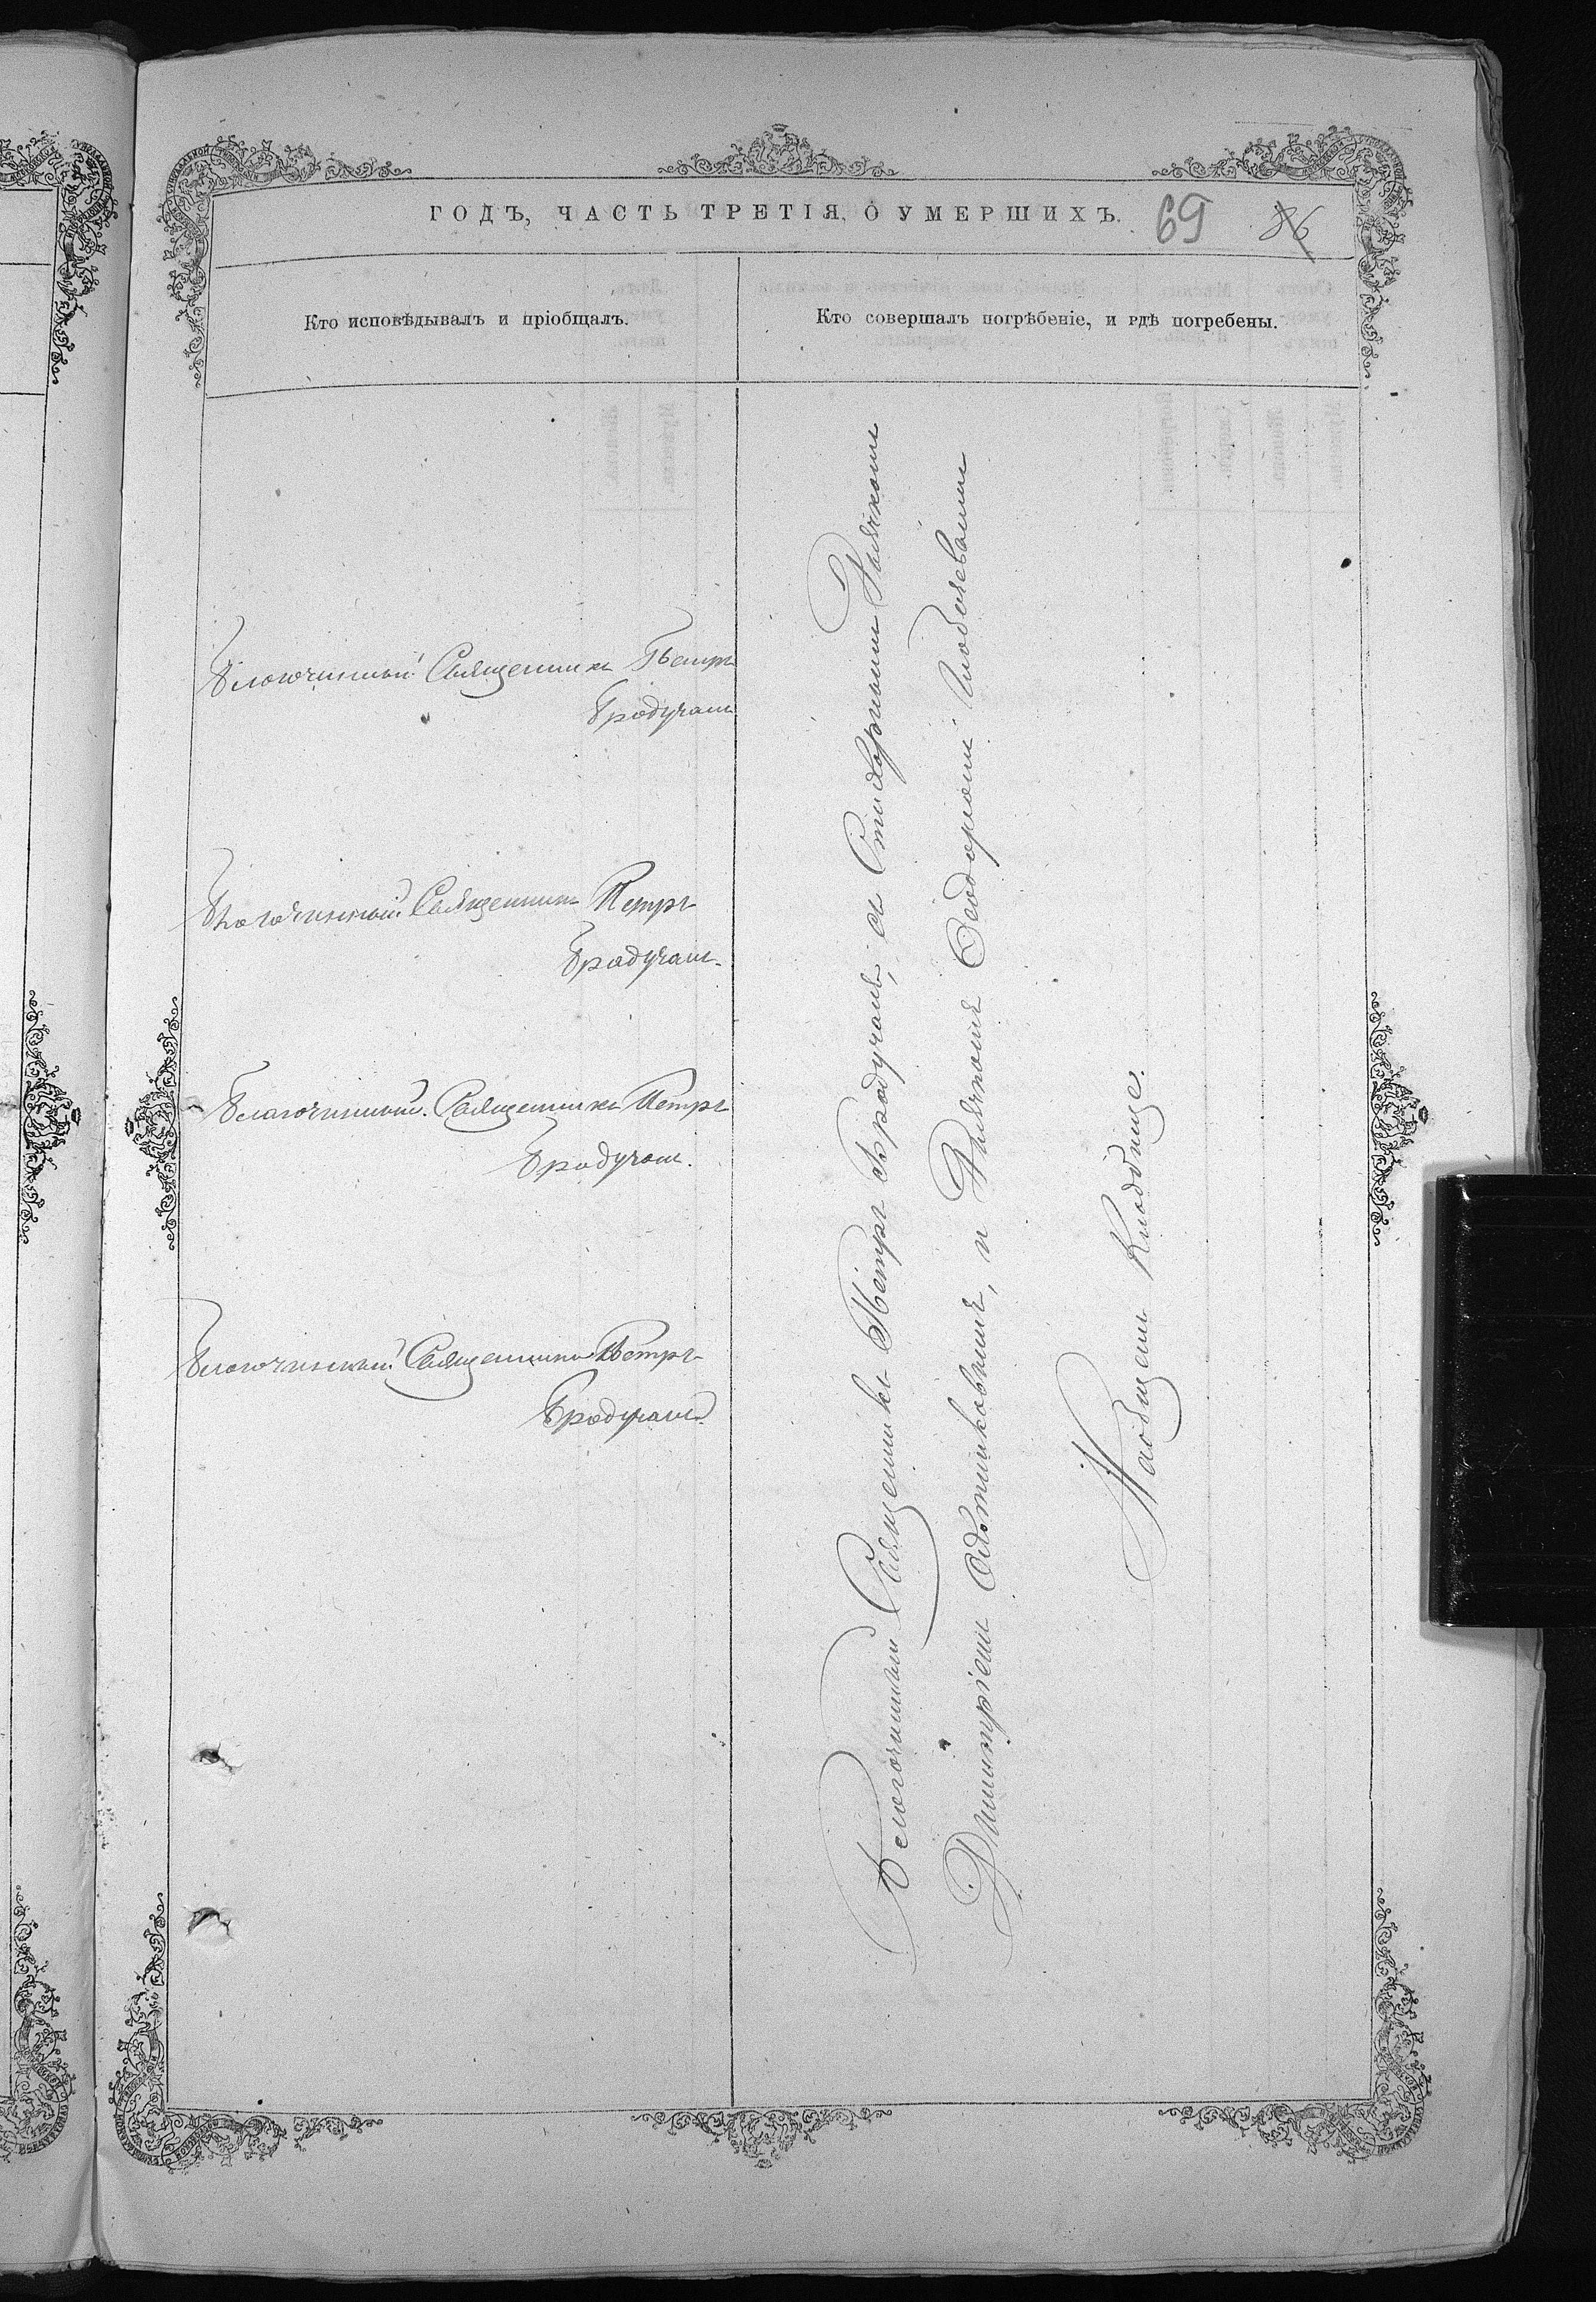 ГОДЪ, ЧАСТЬ ТРЕТІЯ, О УМЕРШИХЪ.
69
86
Кто исповѣдывалъ и пріобщалъ.
Кто совершалъ погрѣбеніе, и гдѣ погребены.
Благочинный Священникъ Петръ
Бродучанъ
Благочинный Священникъ Петръ
Бродучанъ.
Благочинный Священникъ Петръ
Бродучанъ.
Благочинный Священникъ Петръ
Бродучанъ
Благочинный Священникъ Петръ Бродучанъ, съ Стихарнымъ Дьячкомъ
Димитріемъ и Дьячкомъ Ѳеодоромъ
На общемъ Кладбище.